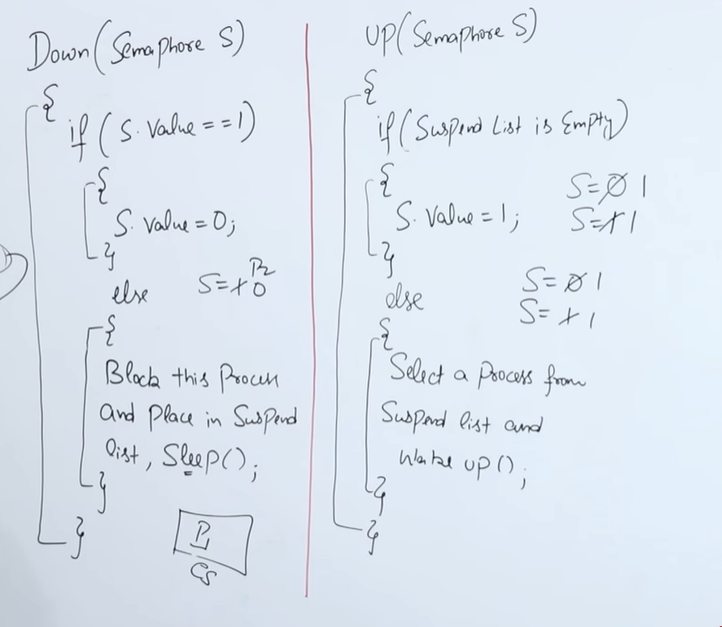 Down(Semaphore S)
{
if (S. Value == 1)
{
S. Value = 0;
}
else
S = 1 0 P2
{
Block this Process
and Place in Suspend
list, Sleep();
}
}
P1
CS
UP(Semaphore S)
{
if(Suspend List is Empty)
{
S. Value = 1;
}
S = 0 1
S = 1 1
else
S = 0 1
S = 1 1
{
Select a Process from
Suspend list and
Wake UP();
}
}